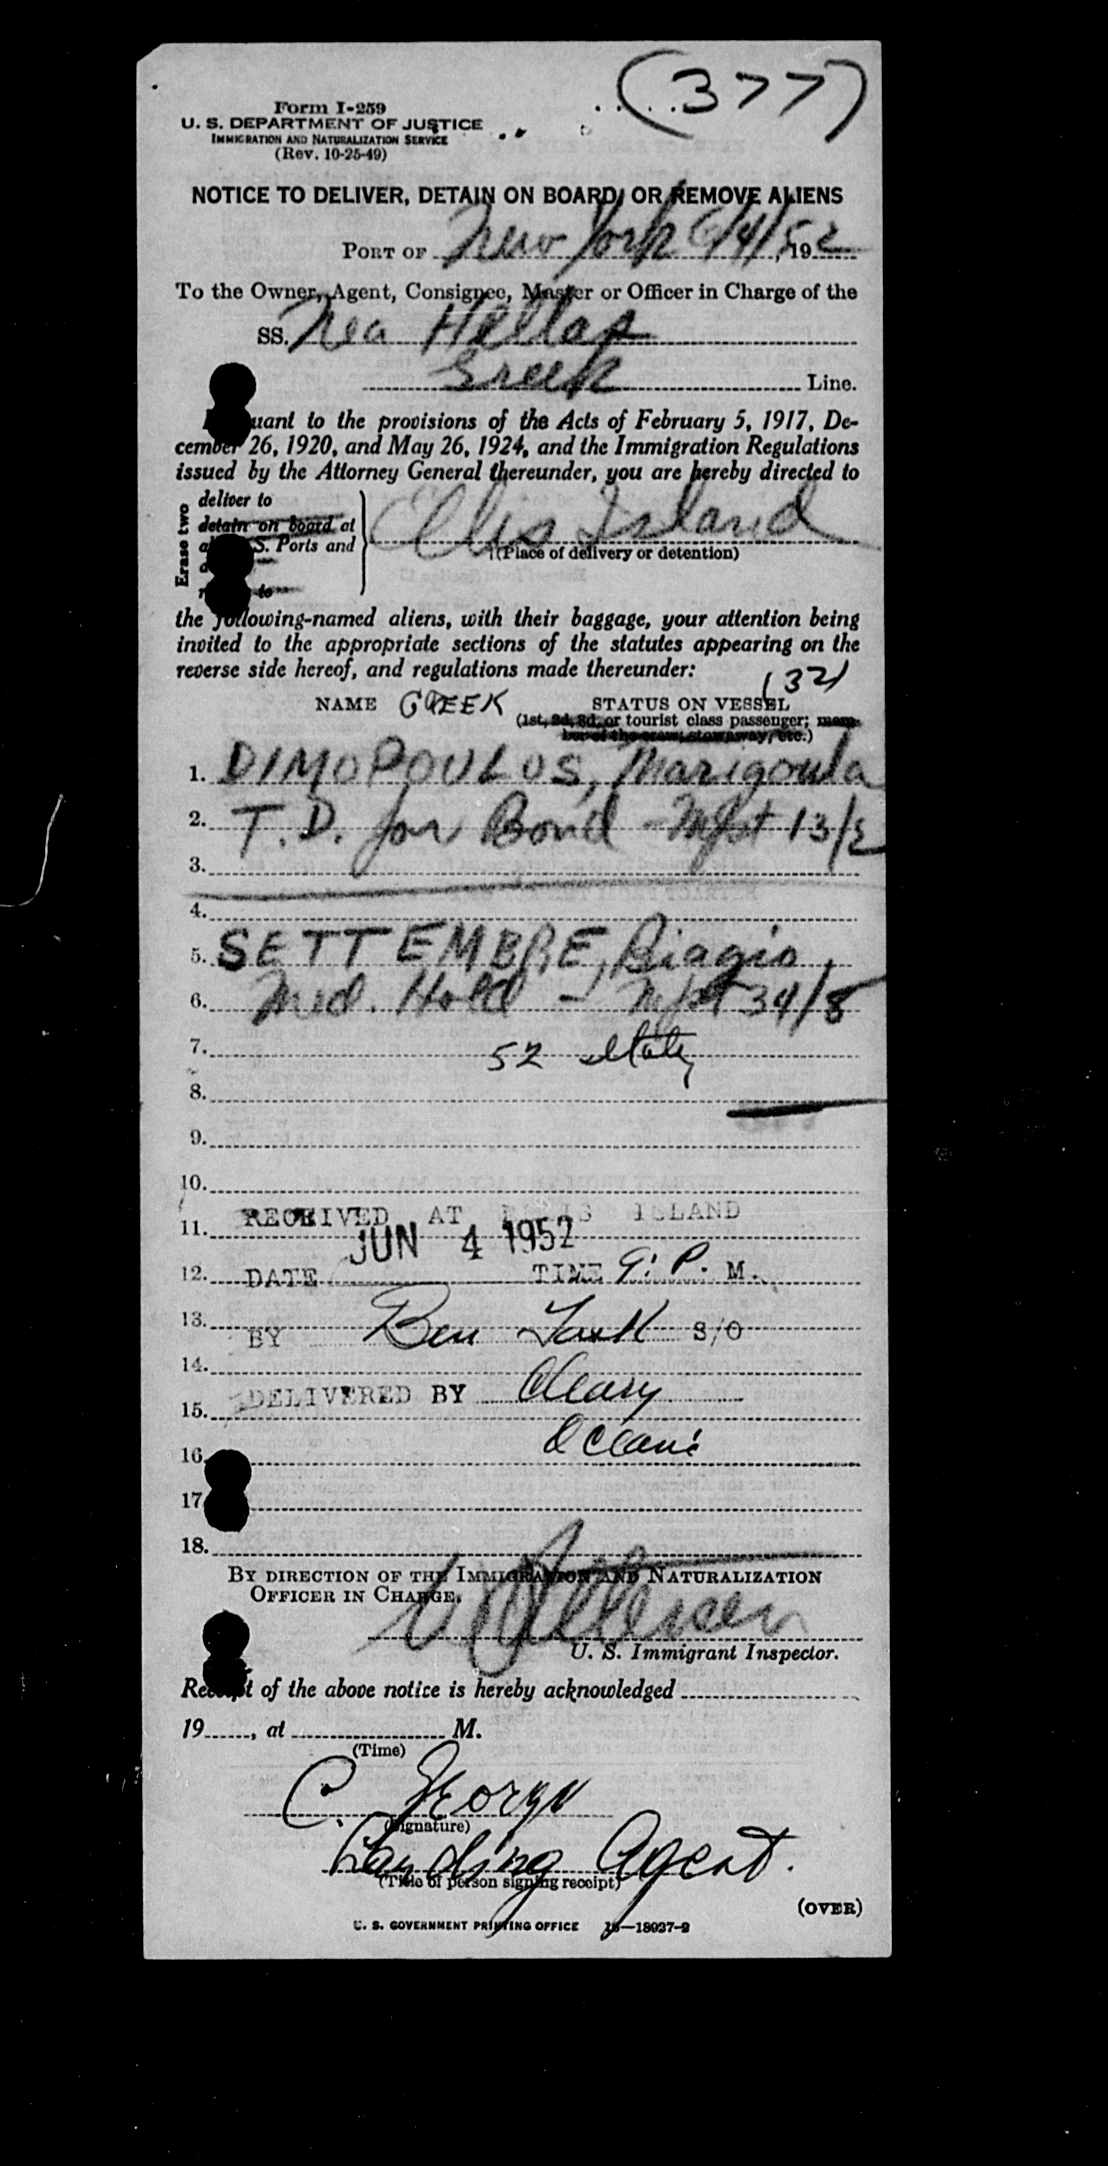 (377)
Form I-259
U. S. DEPARTMENT OF JUSTICE
IMMIGRATION AND NATURALIZATION SERVICE
(Rev. 10-25-49)
NOTICE TO DELIVER, DETAIN ON BOARD, OR REMOVE ALIENS
PORT OF New York 6/4/52, 1952
To the Owner, Agent, Consignee, Master or Officer in Charge of the
SS. Nea Hellas
Greek Line.
uant to the provisions of the Acts of February 5, 1917, De-
cember 26, 1920, and May 26, 1924, and the Immigration Regulations
issued by the Attorney General thereunder, you are hereby directed to
Erase two
deliver to
detain on board at
S. Ports and
to
Ellis Island
(Place of delivery or detention)
the following-named aliens, with their baggage, your attention being
invited to the appropriate sections of the statutes appearing on the
reverse side hereof, and regulations made thereunder:
(32)
NAME GREEK STATUS ON VESSEL
(1st, 2d, 3d, or tourist class passenger; mem-
ber of the crew, stowaway, etc.)
1. DIMOPOULOS, Marigoula
2. T.D. for Bond - Mfst 13/2
3.
4.
5. SETTEMBRE, Biagio
6. Med. Hold - Mfst 34/8
7. 52 Italy
8.
9.
10.
RECEIVED AT ELLIS ISLAND
11. JUN 4 1952
12. DATE TIME 9: P. M.
13. BY Ben S/O
14.
DELIVERED BY Cleary
15.
Oceanic
16.
17.
18.
BY DIRECTION OF THE IMMIGRATION AND NATURALIZATION
OFFICER IN CHARGE,
U. S. Immigrant Inspector.
Receipt of the above notice is hereby acknowledged
19......, at M.
(Time)
C. George
(Signature)
Landing Agent.
(Title of person signing receipt)
(OVER)
U. S. GOVERNMENT PRINTING OFFICE 16—18037-2